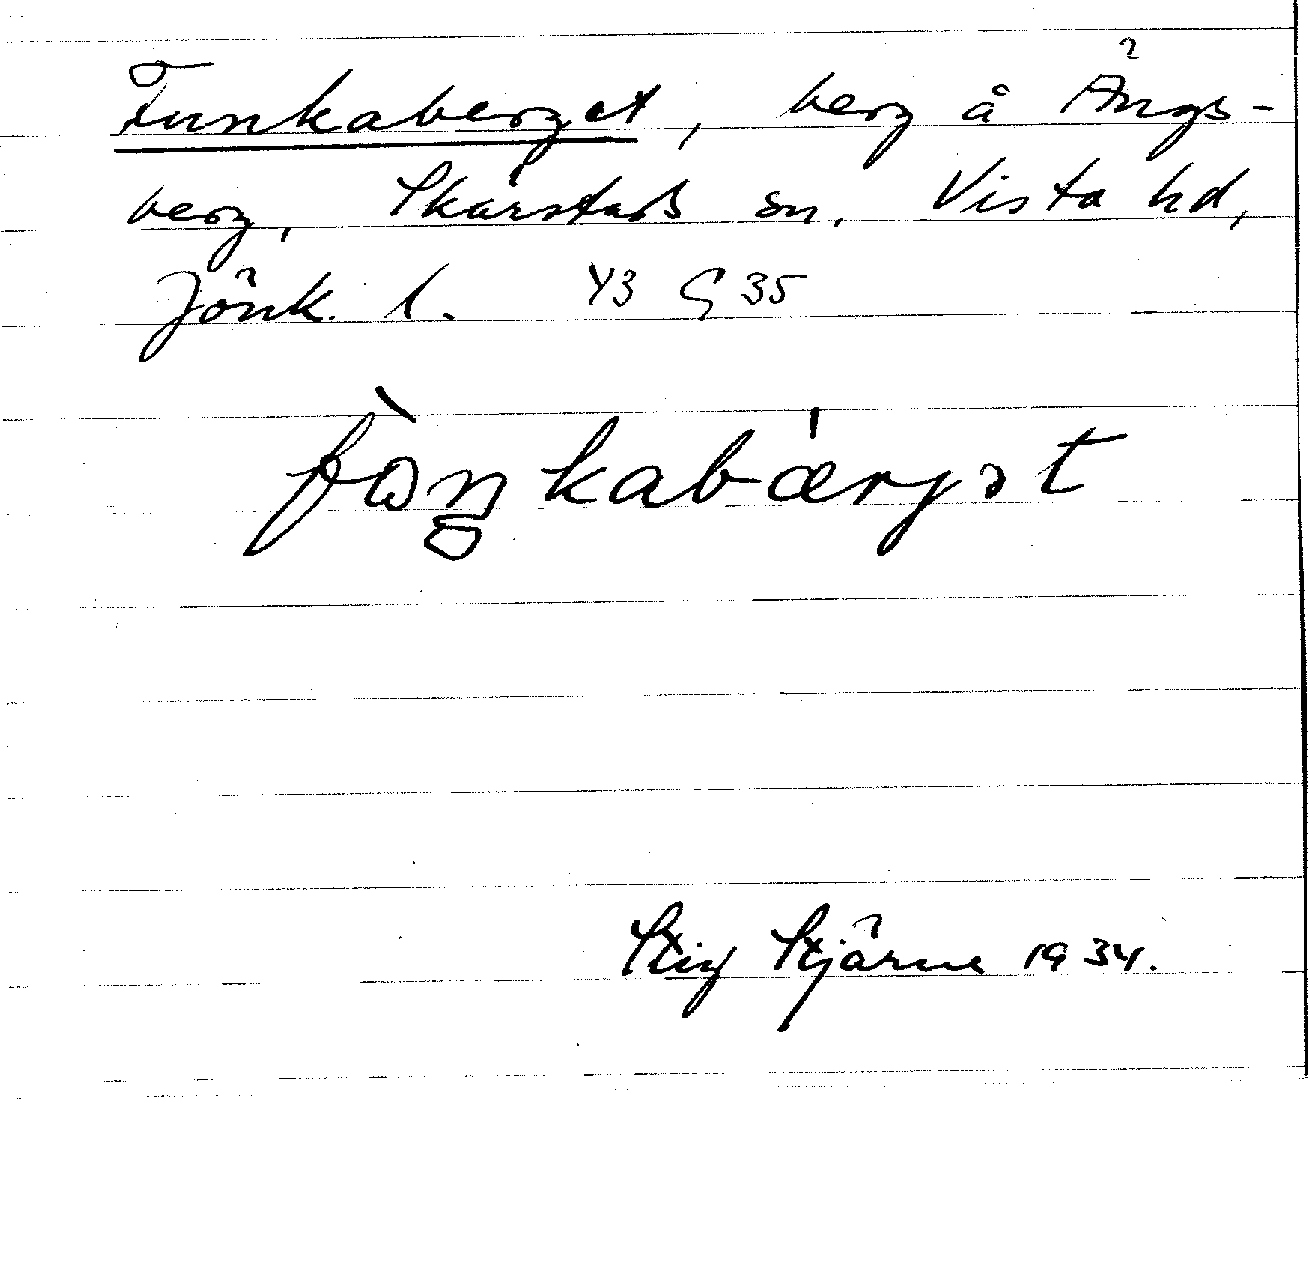 Funkaberget, berg å Ängs-
berg, Skärstads sn, Vista hd,
Jönk. l. Y3 G 35
fὼŋkabǽrjət
Stig Stjärne 1934.